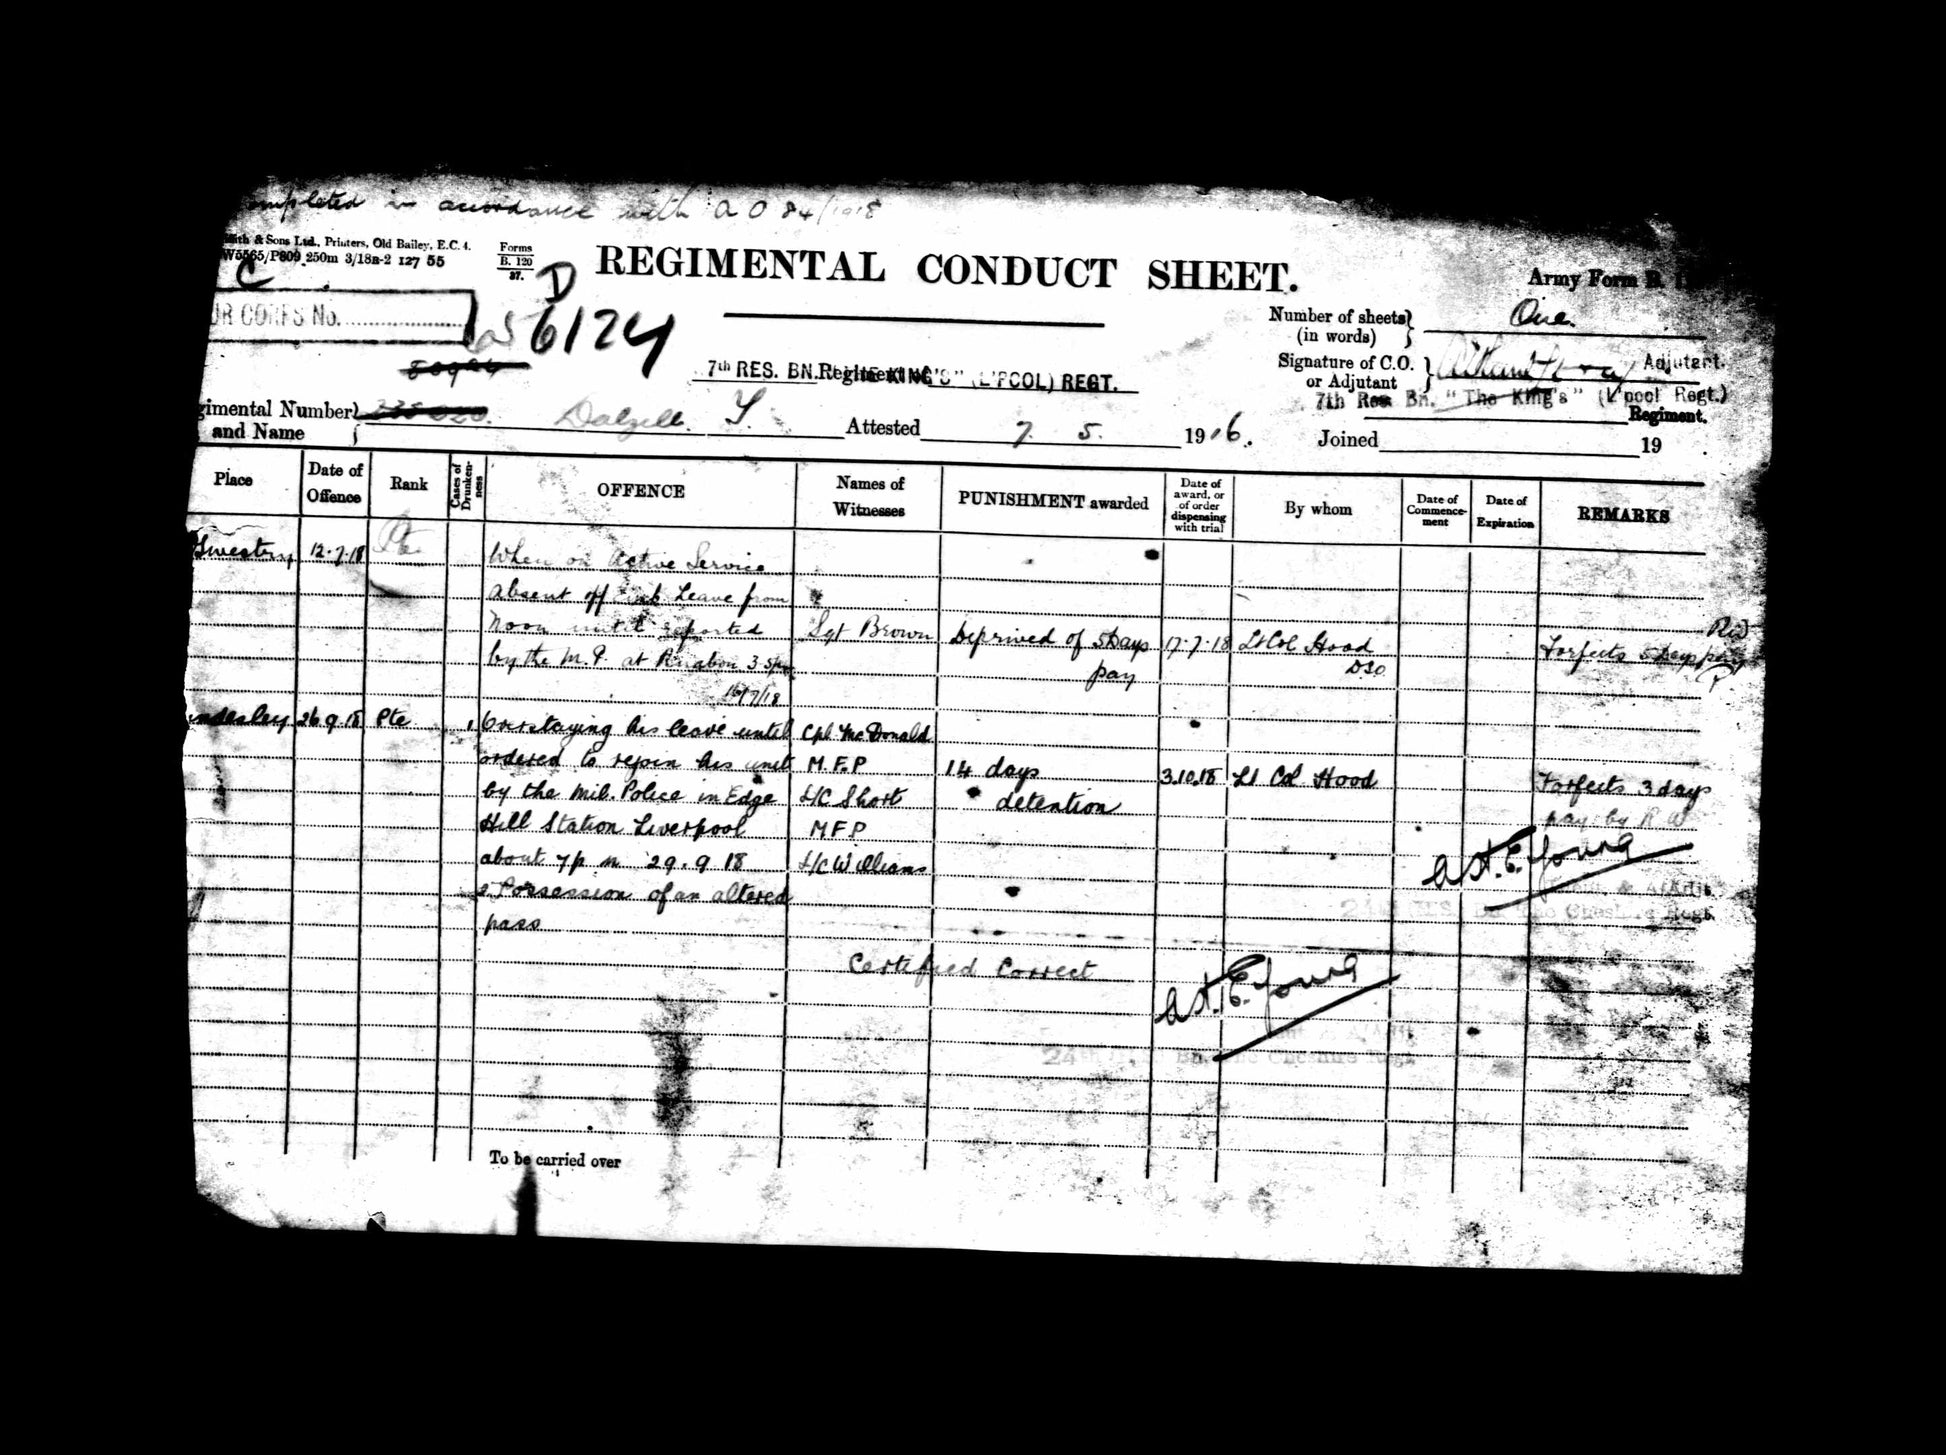 completed in accordance with A O 84/1918
& Sons Ltd., Printers, Old Bailey, E.C. 4.
W5565/P809 250m 3/18B-2 127 55
Forms
B. 120
37.
REGIMENTAL CONDUCT SHEET.
Army Form B.
C
D
CORPS No.
56124
Number of sheets
(in words)
One.
7th RES. BN. Regiment KING'S" (L'POOL) REGT.
Signature of C.O.
or Adjutant
Adjutant.
7th Res. Bn. "The King's" (L'pool Regt.)
Regiment.
Regimental Number
and Name
Dalzell. T.
Attested 7. 5. 1916.
Joined 19
Place
Date of Offence
Rank
Cases of Drunkenness
OFFENCE
Names of Witnesses
PUNISHMENT awarded
Date of award, or of order dispensing with trial
By whom
Date of Commencement
Date of Expiration
REMARKS
Oswestry 12.7.18 Pte. When on Active Service
absent off Leave from
noon until reported Sgt Brown Deprived of 5 Days 17.7.18 Lt Col Hood Forfeits 5 Days pay
by the M.P. at Ruabon 3.5pm pay DSO
16/7/18
26 9 18 Pte 1. Overstaying his leave until Cpl McDonald
ordered to rejoin his unit M.F.P 14 days 3.10.18 Lt Col Hood Forfeits 3 days
by the Mil. Police in Edge L/C Short detention pay by R W
Hill Station Liverpool M F P
about 7 p m 29.9.18 L/C Williams A.H.E. Young
2. Possession of an altered
pass
Certified Correct
A.H.E. Young
To be carried over